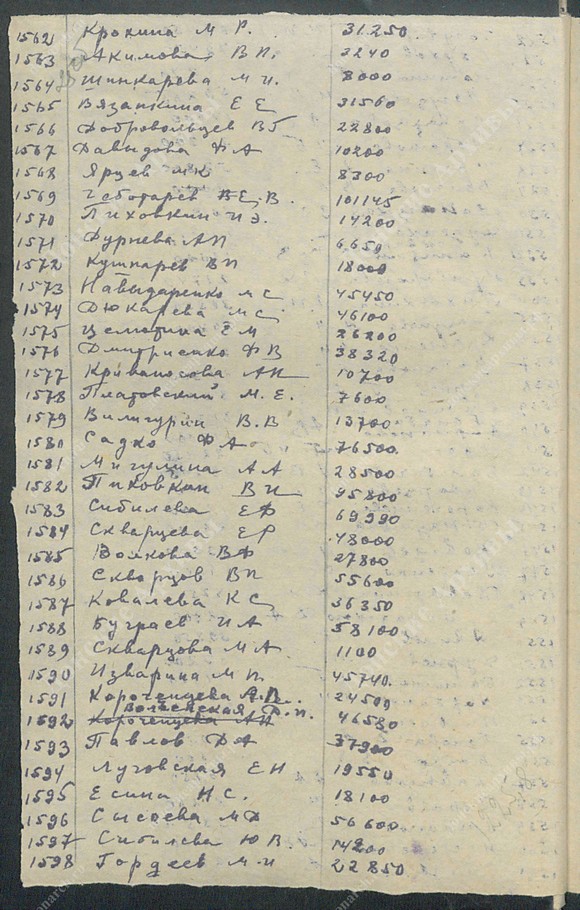 1562 Крохина М Р. 31.250
1563 Акимова В П. 2240
1564 Шинкарева М И. 8000
1565 Вязанкина Е Е 31560
1566 Добровольцев В Г 22800
1567 Давыдова Ф А 10200
1568 Ярцев М К 8300
1569 Чеботарев В.Е.В. 101145
1570 Лиховкин И Э. 14200
1571 Дурнева А П 6.650
1572 Кушнарев В П 18000
1573 М С 45450
1574 Дюкарева М С 46100
1575 Целютина Е М 26200
1576 Дмитриенко Ф В 38320
1577 Кривоносова А Н 10700
1578 Платовский М. Е. 7600
1579 Вилигурин В. В 13700
1580 Садко Ф А 76500
1581 Мигулина А А 28500
1582 В И 95800
1583 Сибилева Е Ф 69990
1584 Скварцева Е Р 48000
1585 Волкова В Ф 27800
1586 Скворцов В П 55600
1587 Ковалева К С 36350
1588 Буграев И А 58100
1589 Скварцова М А 1100
1590 Изварина М П. 45740.
1591 Короченцева А. 24500
Волченская, Ф. П.
1592 Короченцева А Н 46580
1593 Павлов Ф А 37900
1594 Луговская Е Н 19550
1595 Есина Н С. 18100
1596 Сысоева М Д 56600
1597 Сибилева Ю В. 14200
1598 Гордеев М И 22850